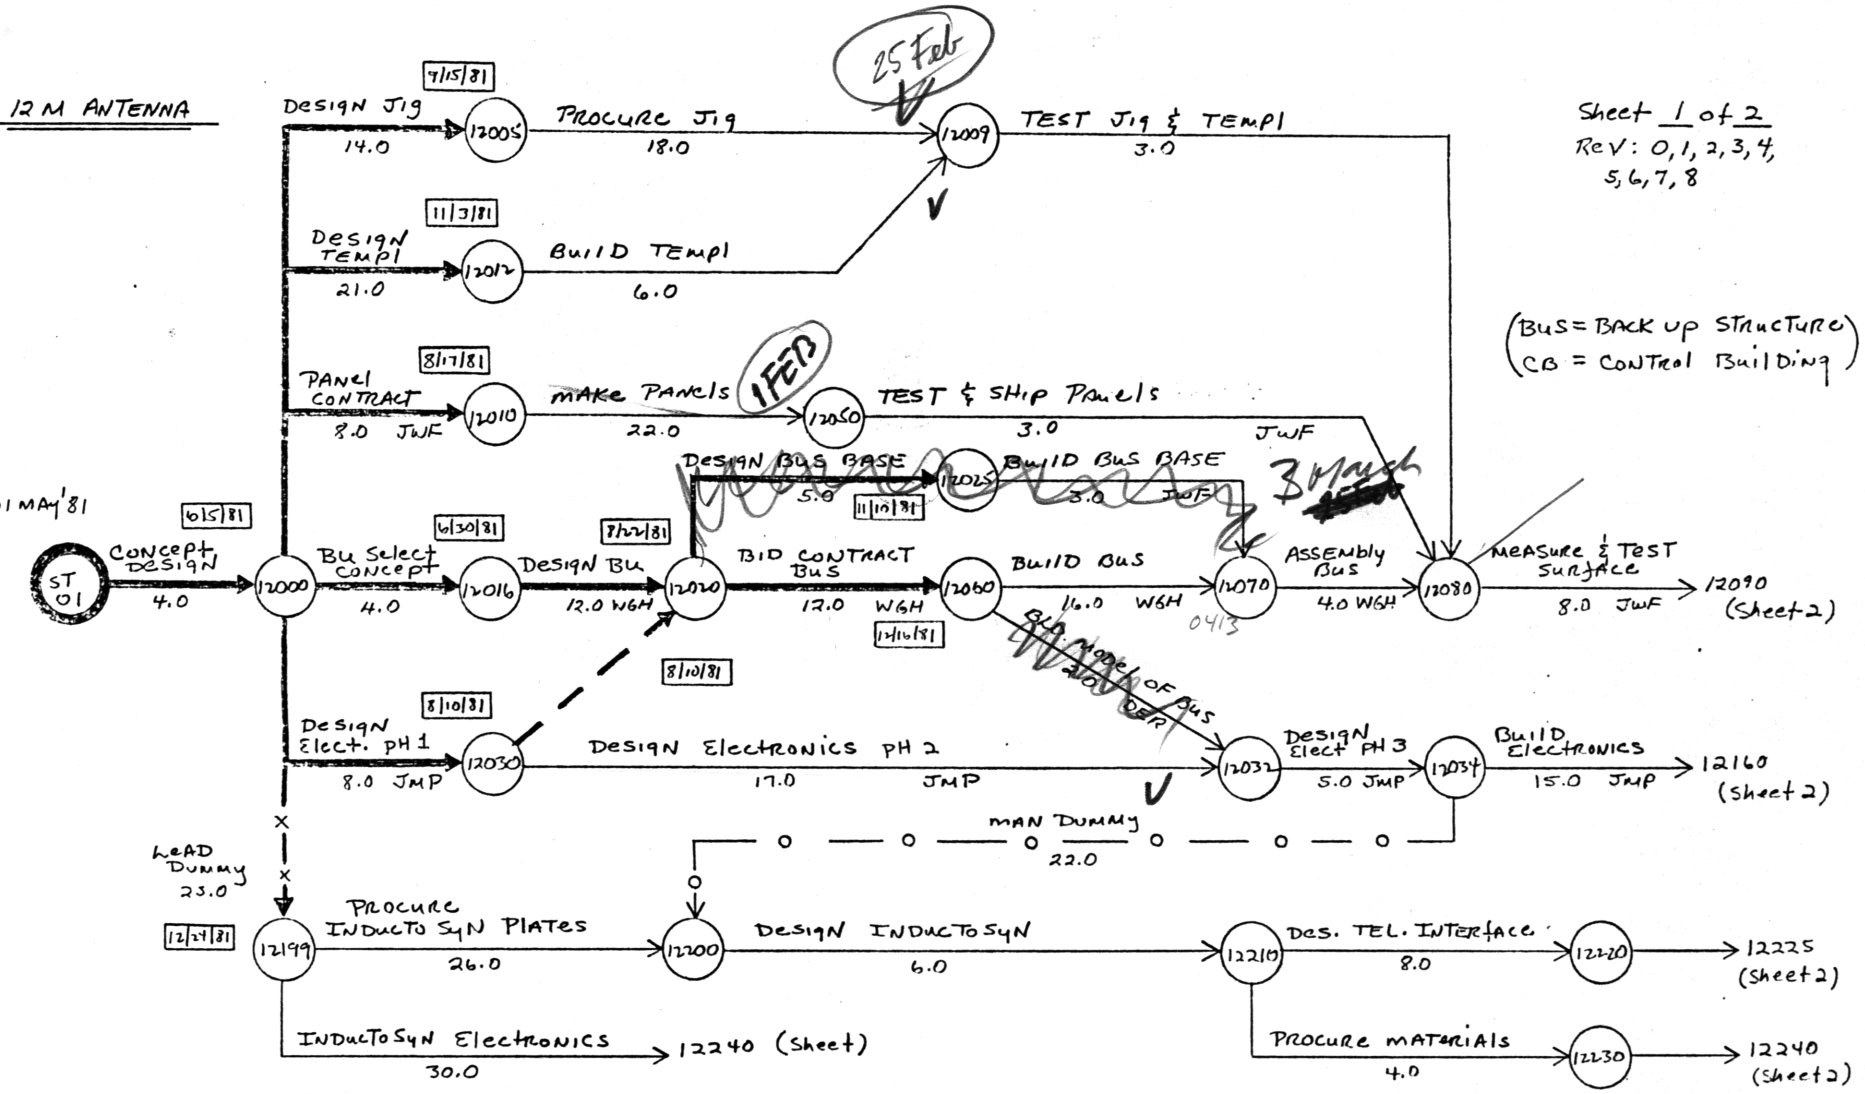 12 M ANTENNA
Sheet 1 of 2
Rev: 0,1,2,3,4,
5,6,7,8
(BUS = BACK UP STRUCTURE)
(CB = CONTROL BUILDING)
25 Feb
9/15/81
DESIGN JIG
14.0
12005
PROCURE JIG
18.0
12009
TEST JIG & TEMPL
3.0
11/3/81
DESIGN
TEMPL
21.0
12012
BUILD TEMPL
6.0
8/17/81
PANEL
CONTRACT
8.0 JWF
12010
MAKE PANELS
22.0
1 FEB
12050
TEST & SHIP PANELS
3.0 JWF
DESIGN BUS BASE
5.0
12025
BUILD BUS BASE
3.0 JWF
3 March
01 MAY '81
ST
01
CONCEPT
DESIGN
4.0
6/5/81
12000
BU SELECT
CONCEPT
4.0
6/30/81
12016
DESIGN BU
12.0 WGH
12020
BID CONTRACT
BUS
12.0 WGH
12/16/81
12060
BUILD BUS
16.0 WGH
12070
0413
ASSEMBLY
BUS
4.0 WGH
12080
MEASURE & TEST
SURFACE
8.0 JWF
12090
(Sheet 2)
8/10/81
BLD. MODEL OF BUS
2.0 DER
8/10/81
DESIGN
ELECT. PH 1
8.0 JMP
12030
DESIGN ELECTRONICS PH 2
17.0 JMP
12032
DESIGN
ELECT PH 3
5.0 JMP
12034
BUILD
ELECTRONICS
15.0 JMP
12160
(Sheet 2)
MAN DUMMY
22.0
LEAD
DUMMY
23.0
12/24/81
12199
PROCURE
INDUCTOSYN PLATES
26.0
12200
DESIGN INDUCTOSYN
6.0
12210
DES. TEL. INTERFACE
8.0
12220
12225
(Sheet 2)
INDUCTOSYN ELECTRONICS
30.0
12240 (Sheet)
PROCURE MATERIALS
4.0
12230
12240
(Sheet 2)